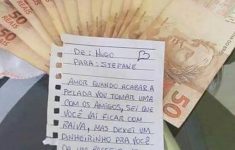 DE: HUGO
PARA: STEFANE
AMOR QUANDO ACABAR A
PELADA VOU TOMAR UMA
COM OS AMIGOS, SEI QUE
VOCÊ VAI FICAR COM
RAIVA, MAS DEIXEI UM
DINHEIRINHO PRA VOCÊ
50
50